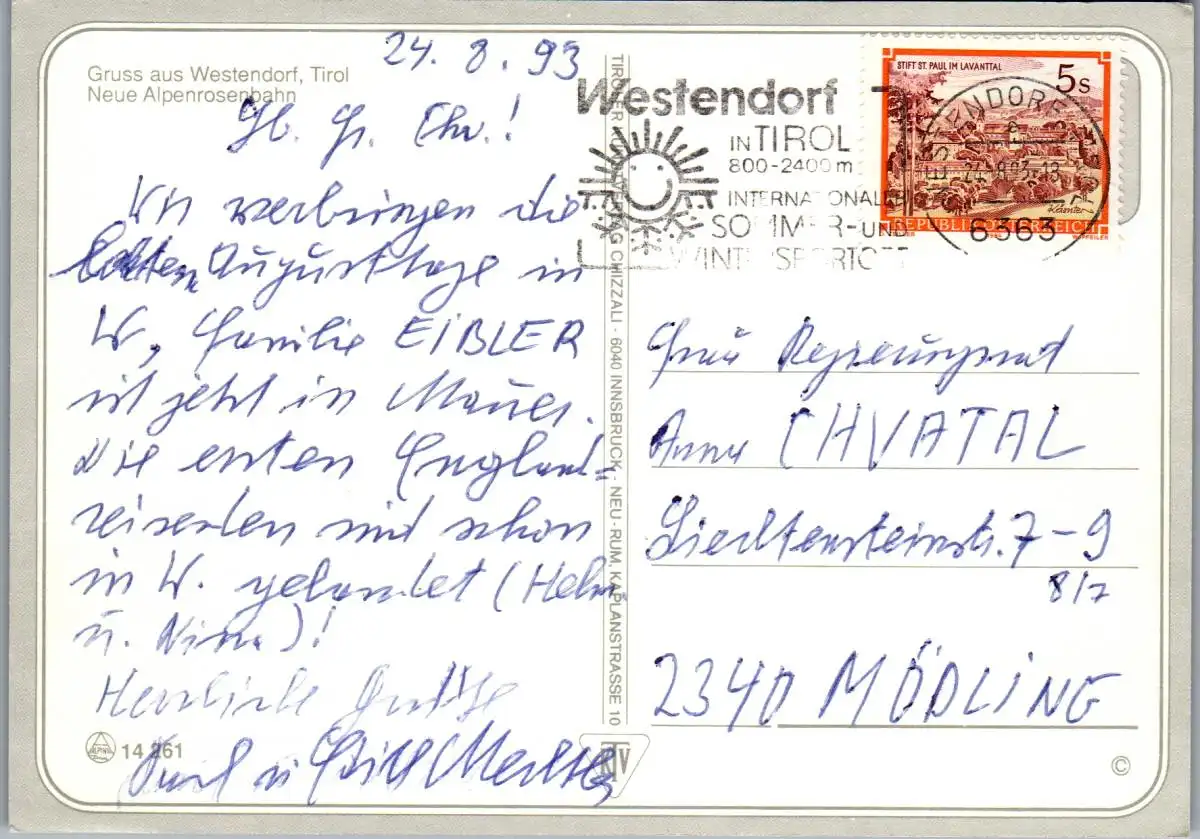 Gruss aus Westendorf, Tirol
Neue Alpenrosenbahn
24. 8. 93
Lb. Fr. Chv.!
Wir verbringen die
letzten Augusttage in
W, Familie EIBLER
ist jetzt in Mauer.
Die ersten England=
reisenden sind schon
in W. gelandet (Helm
u. Nina)!
Herzliche Grüße
u
14 261
TIROLER KUNSTVERLAG CHIZZALI · 6040 INNSBRUCK, NEU-RUM, KAPLANSTRASSE 10
Westendorf
IN TIROL
800-2400m
INTERNATIONALER
SOMMER- UND
WINTERSPORTORT
STIFT ST. PAUL IM LAVANTTAL
5s
Kärnten
REPUBLIK ÖSTERREICH
24.-8.93-18
6363
Frau Regierungsrat
Anna CHVATAL
Liechtensteinstr. 7-9
8/7
2340 MÖDLING
KTV
©